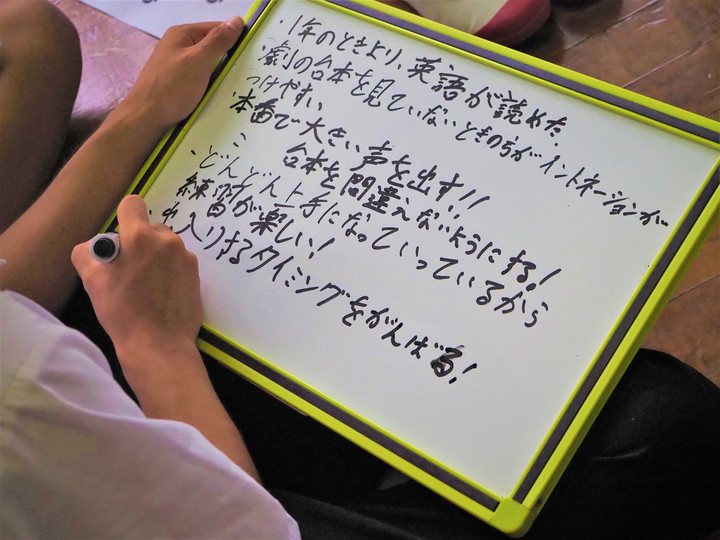 ・1年のときより、英語が読めた。
・劇の台本を見ていないときのちがイントネーションが
つけやすい、
・本番で大きい声を出す!!
〃 台本を間違えないようにする!
・どんどん上手になっていっているから
練習が楽しい!
入りするタイミングをがんばる!